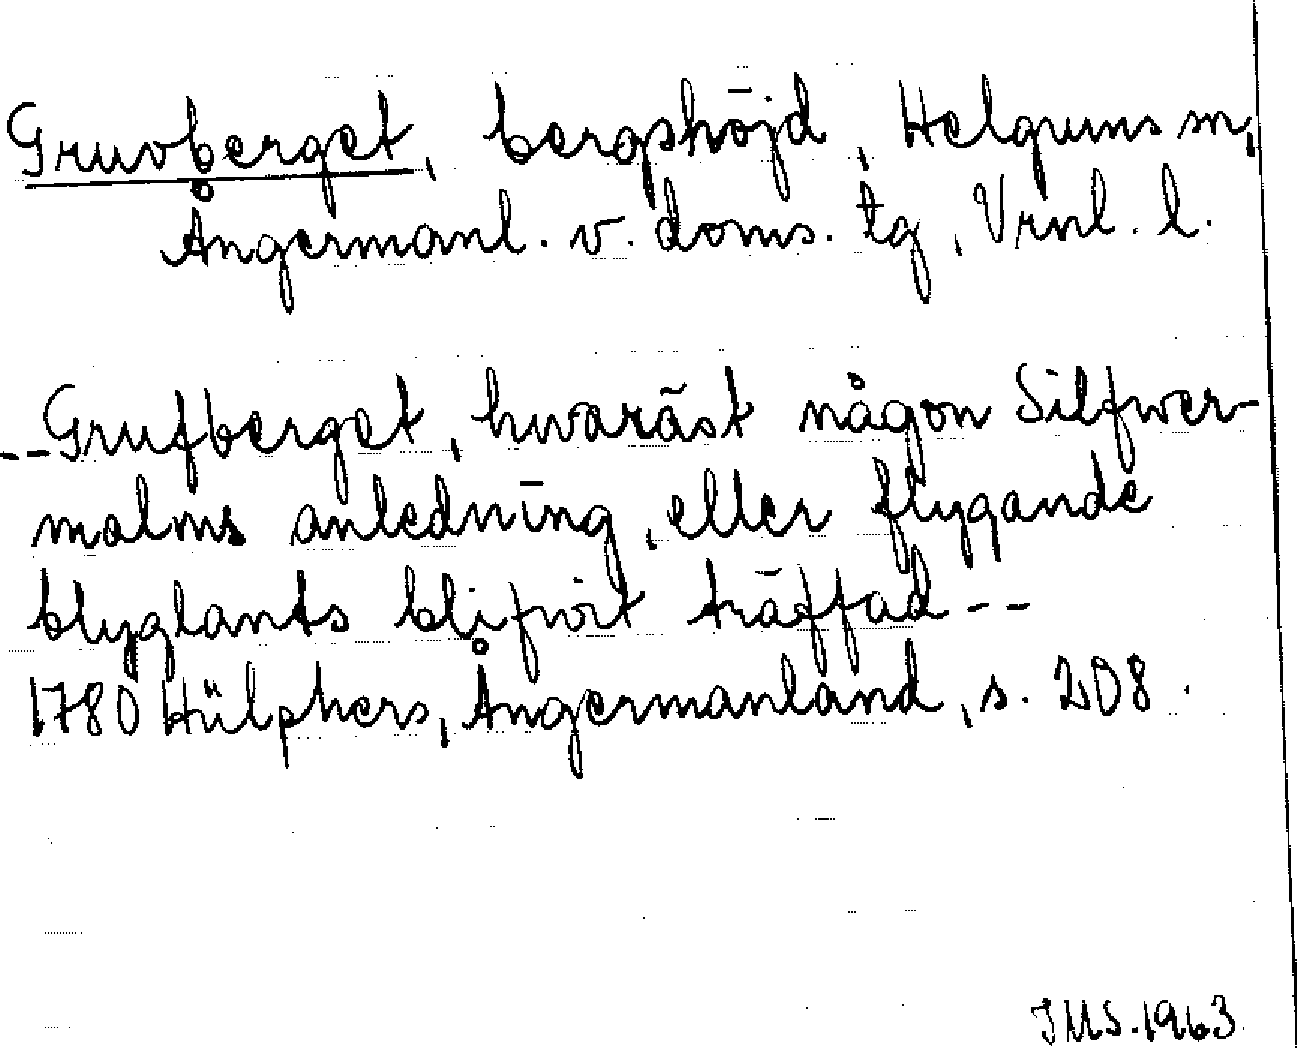 Gruvberget, bergshöjd, Helgums sn,
Ångermanl. v. doms. tg, Vrnl. l.
--Grufberget, hwaräst någon Silfwer-
malms anledning, eller flygande
blyglants blifwit träffad--
1780 Hülphers, Ångermanland, s. 208.
JMS.1963